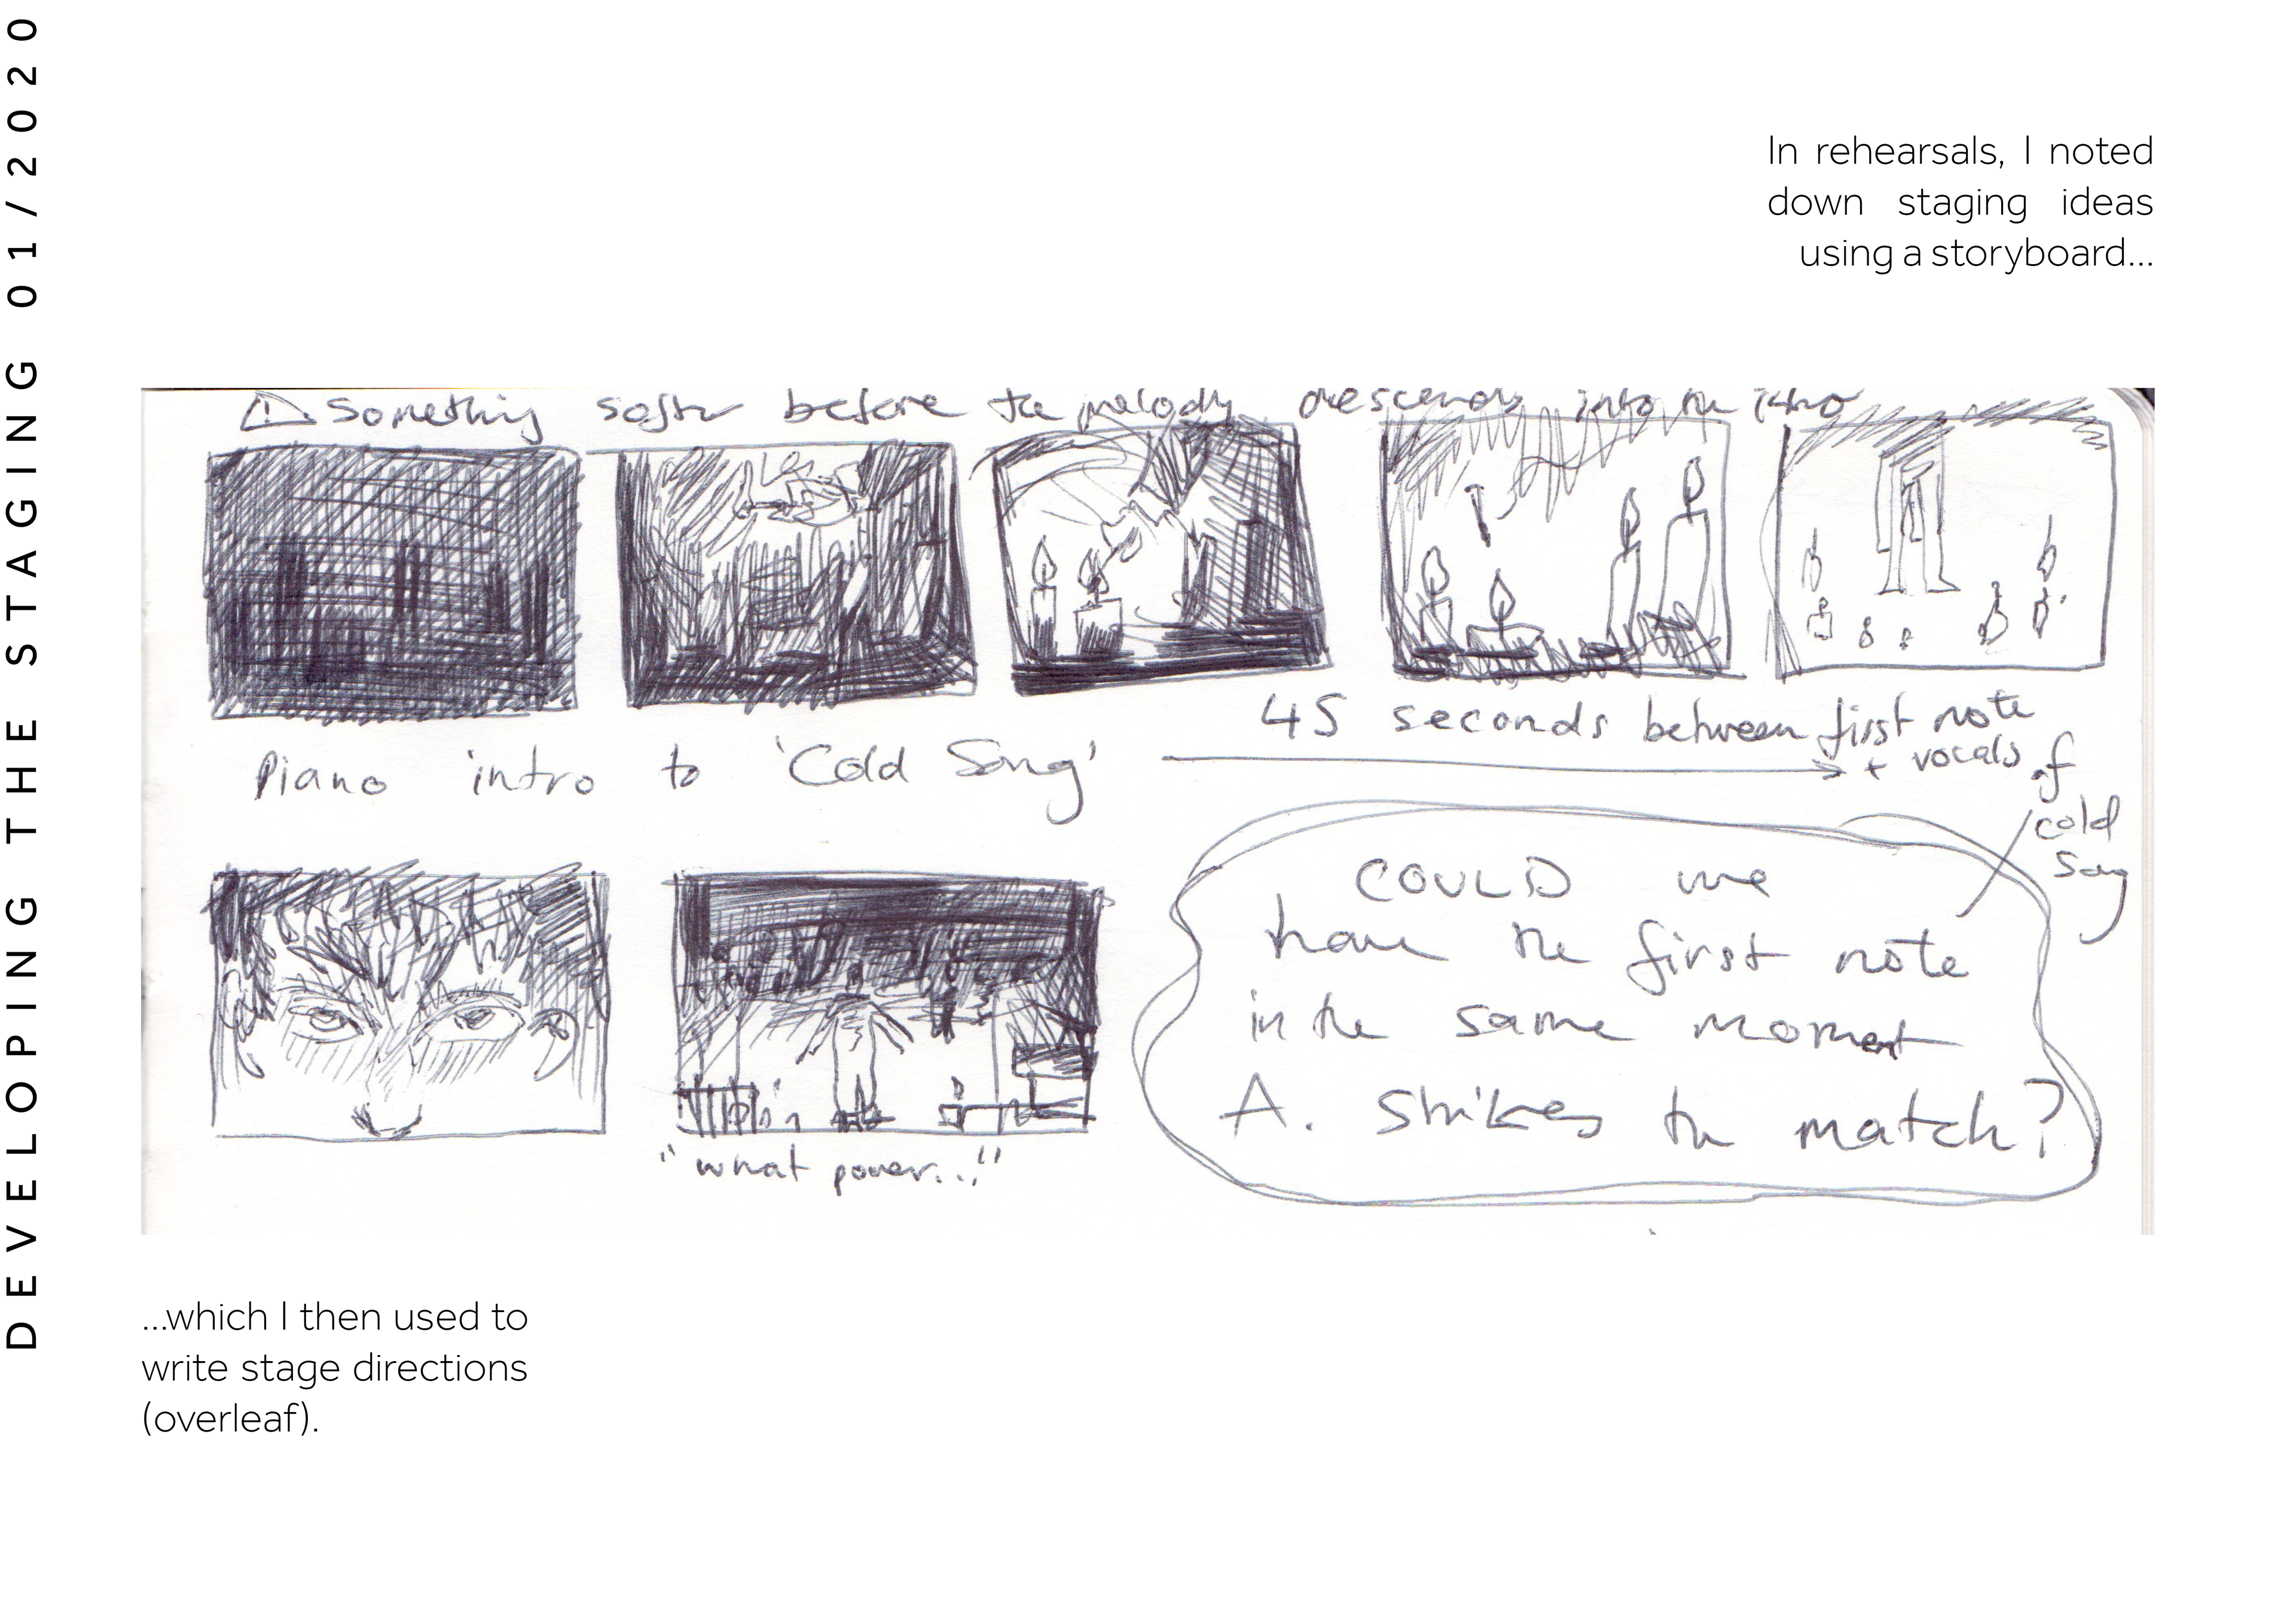 DEVELOPING THE STAGING 01/2020
In rehearsals, I noted
down staging ideas
using a storyboard...
Something softer before the melody descends into the intro
45 seconds between first note
+ vocals of
cold
song
Piano intro to 'Cold Song'
COULD we
have the first note
in the same moment
A. strikes the match?
"what power..."
...which I then used to
write stage directions
(overleaf).